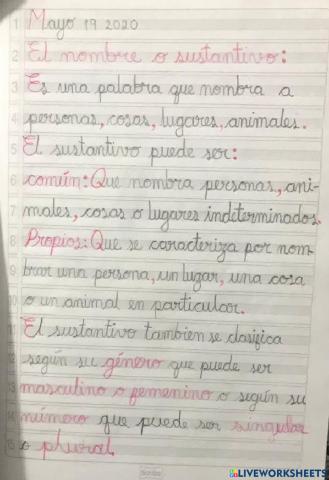 1 Mayo 19 2020
2 El nombre o sustantivo:
3 Es una palabra que nombra a
4 personas, cosas, lugares, animales.
5 El sustantivo puede ser:
6 común: Que nombra personas, ani-
7 males, cosas o lugares indeterminados.
8 Propios: Que se caracteriza por nom-
9 brar una persona, un lugar, una cosa
10 o un animal en particular.
11 El sustantivo tambien se clasifica
12 según su género que puede ser
13 masculino o femenino o según su
14 número que puede ser singular
15 o plural.
LIVEWORKSHEETS